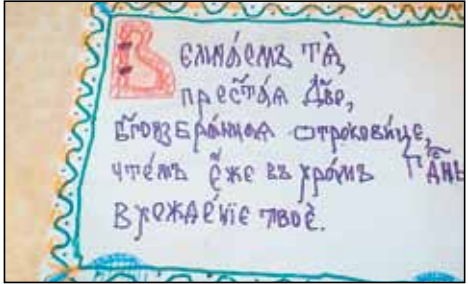 Велича́емъ тѧ̀,
прест҃а́ѧ Дв҃о,
бг҃оизбра́ннаѧ отрокови́це,
чте́мъ є҆́же въ хра́мъ Гдⷭ҇нь
вхожде́нїе твоѐ.